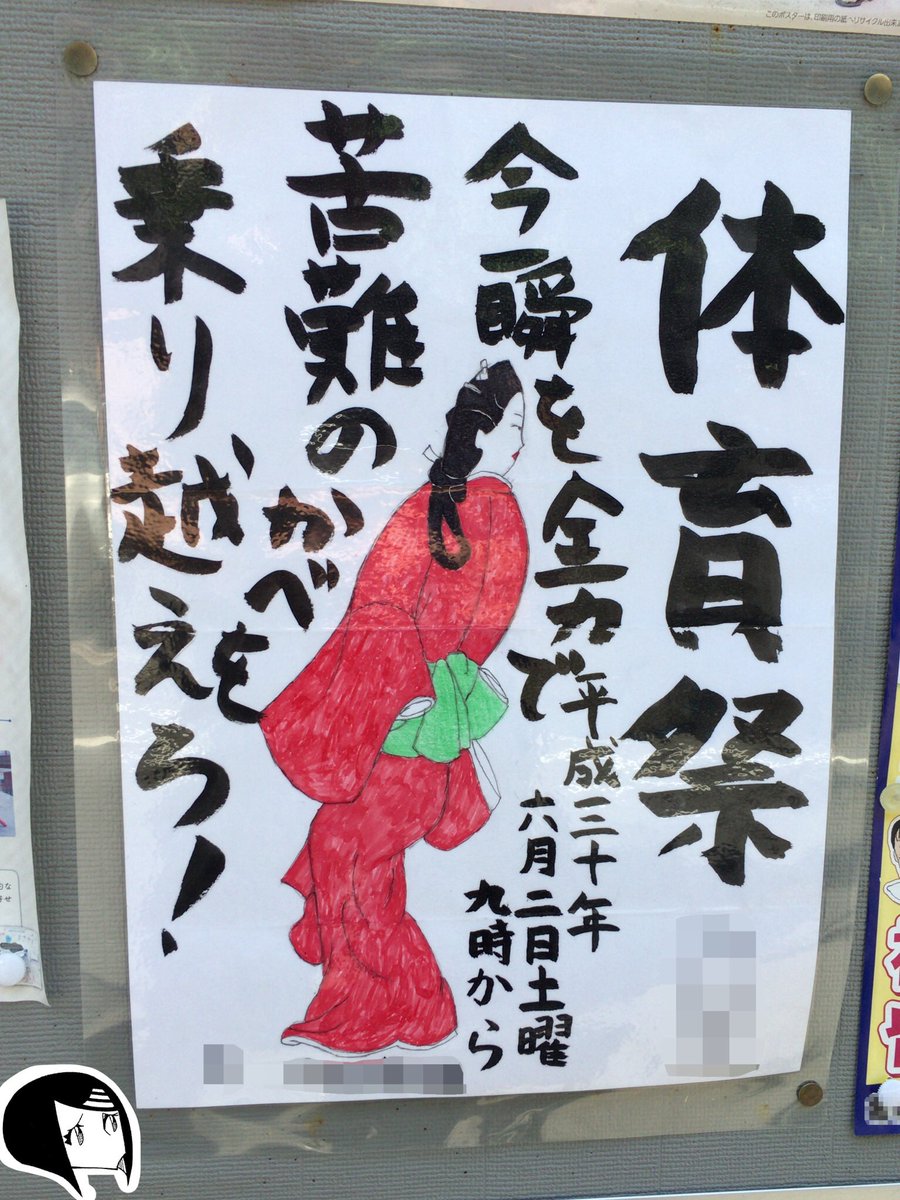 体育祭
今一瞬を全力で
苦難のかべを
乗り越えろ!
平成三十年
六月二日土曜
九時から
このポスターは、印刷用の紙へリサイクル出来